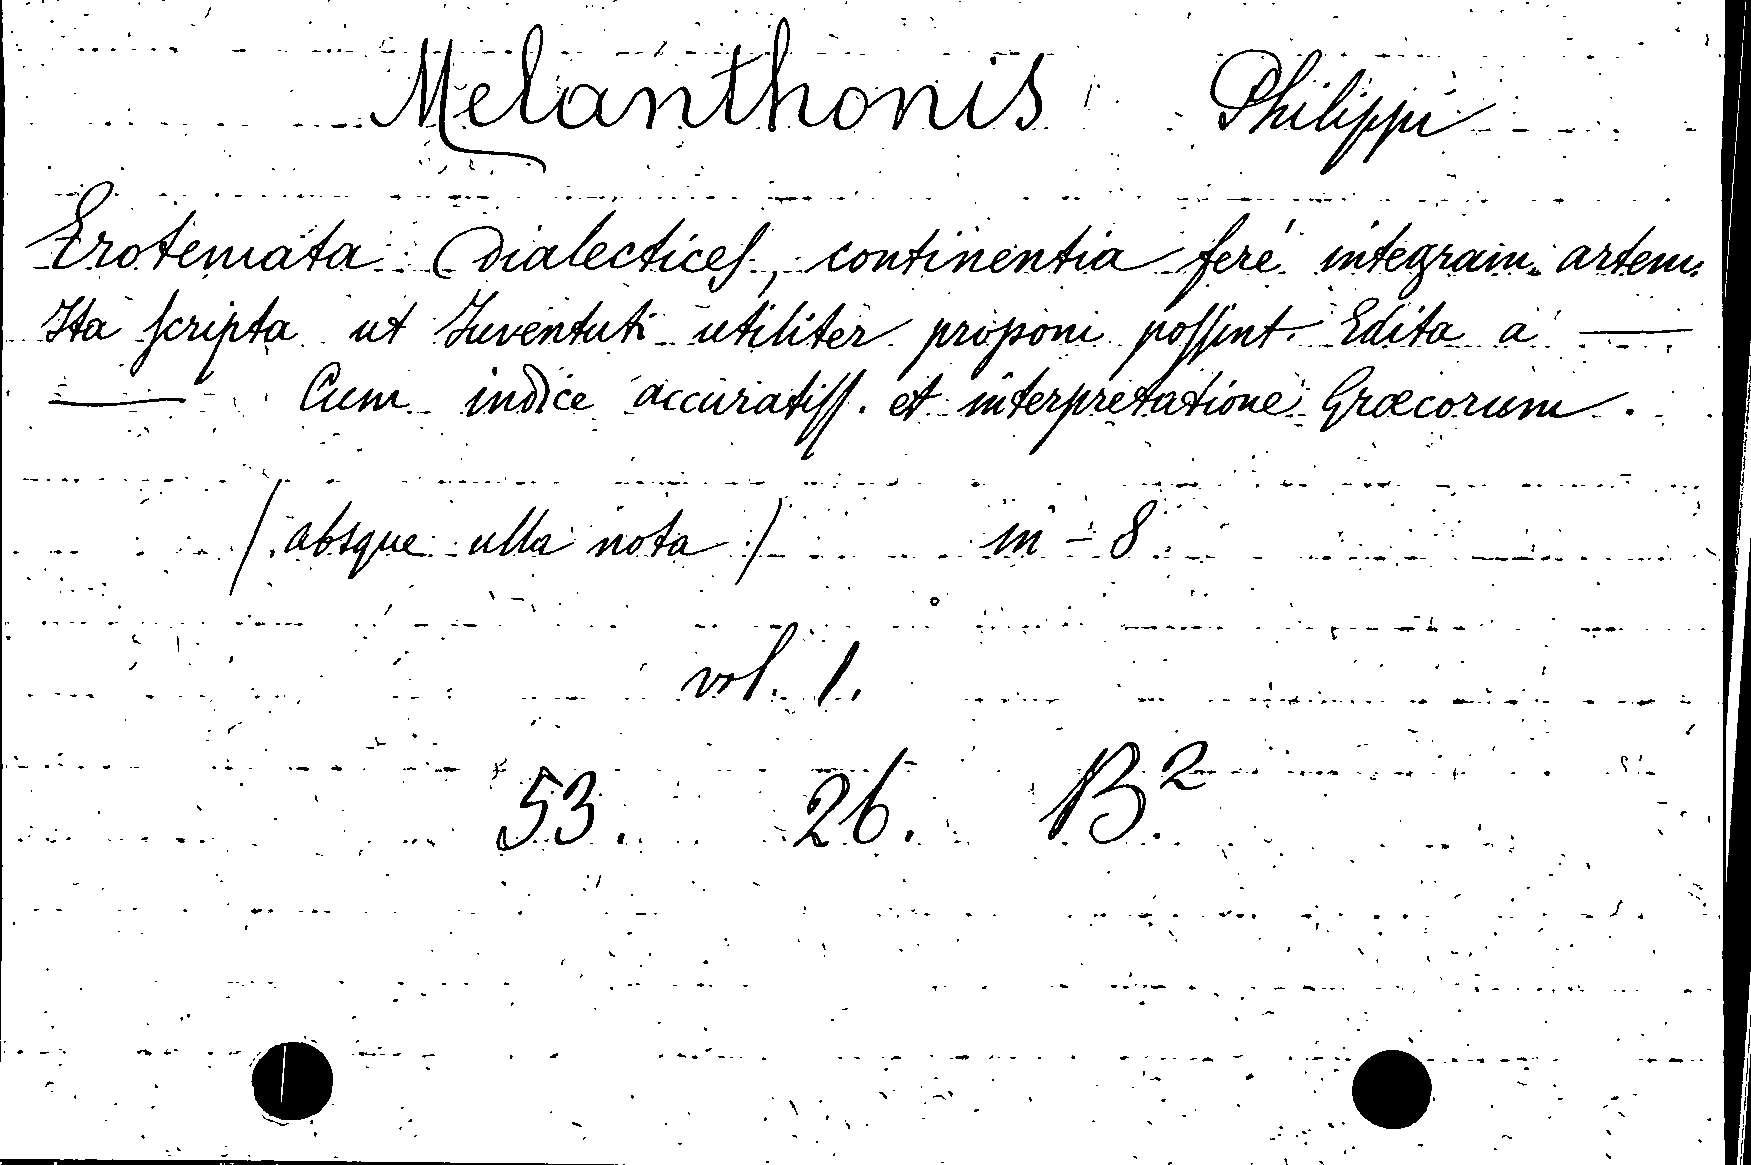 Melanthonis Philippi
Erotemata Dialectices, continentia ferè integram artem.
Ita scripta ut Iuventuti utiliter proponi possint. Edita a ——
—— Cum indice accuratiss. et interpretatione Græcorum.
(absque ulla nota) in-8
vol. 1.
53. 26. B².